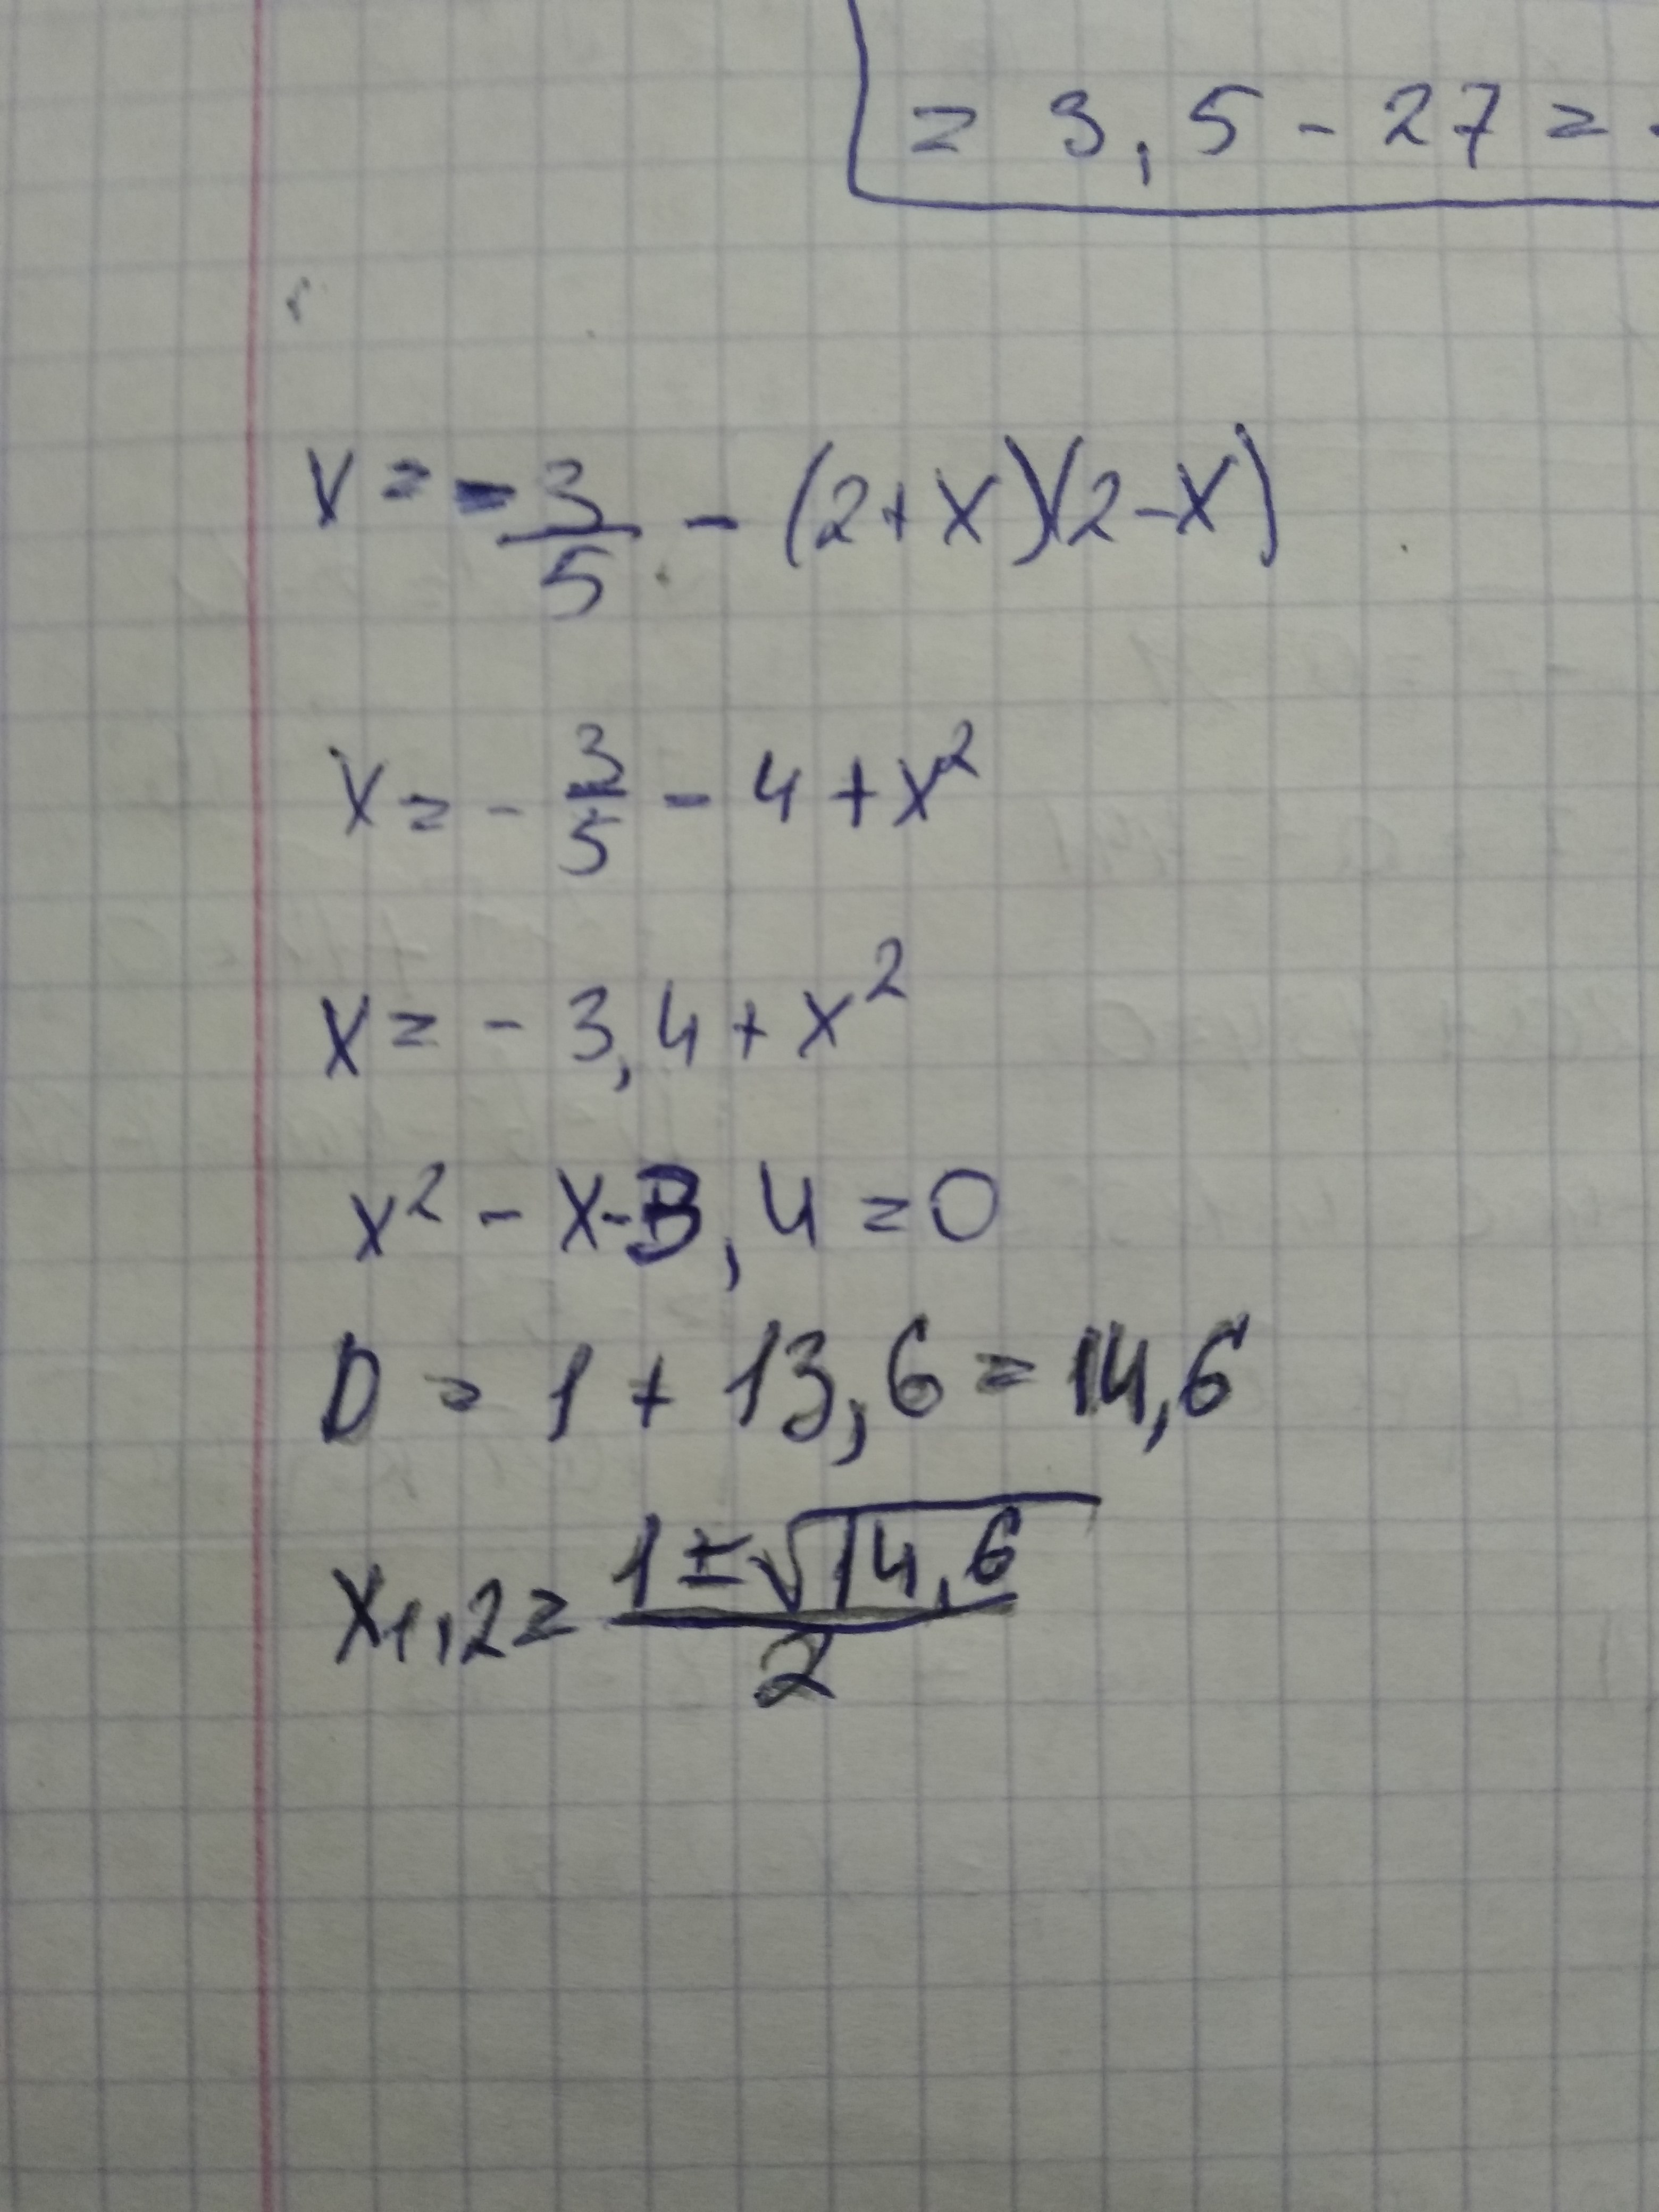 = 3,5 - 27 =
x = -3/5 - (2+x)(2-x)
x = - 3/5 - 4 + x²
x = - 3,4 + x²
x² - x - 3,4 = 0
D = 1 + 13,6 = 14,6
x₁,₂ = (1 ± √14,6)/2